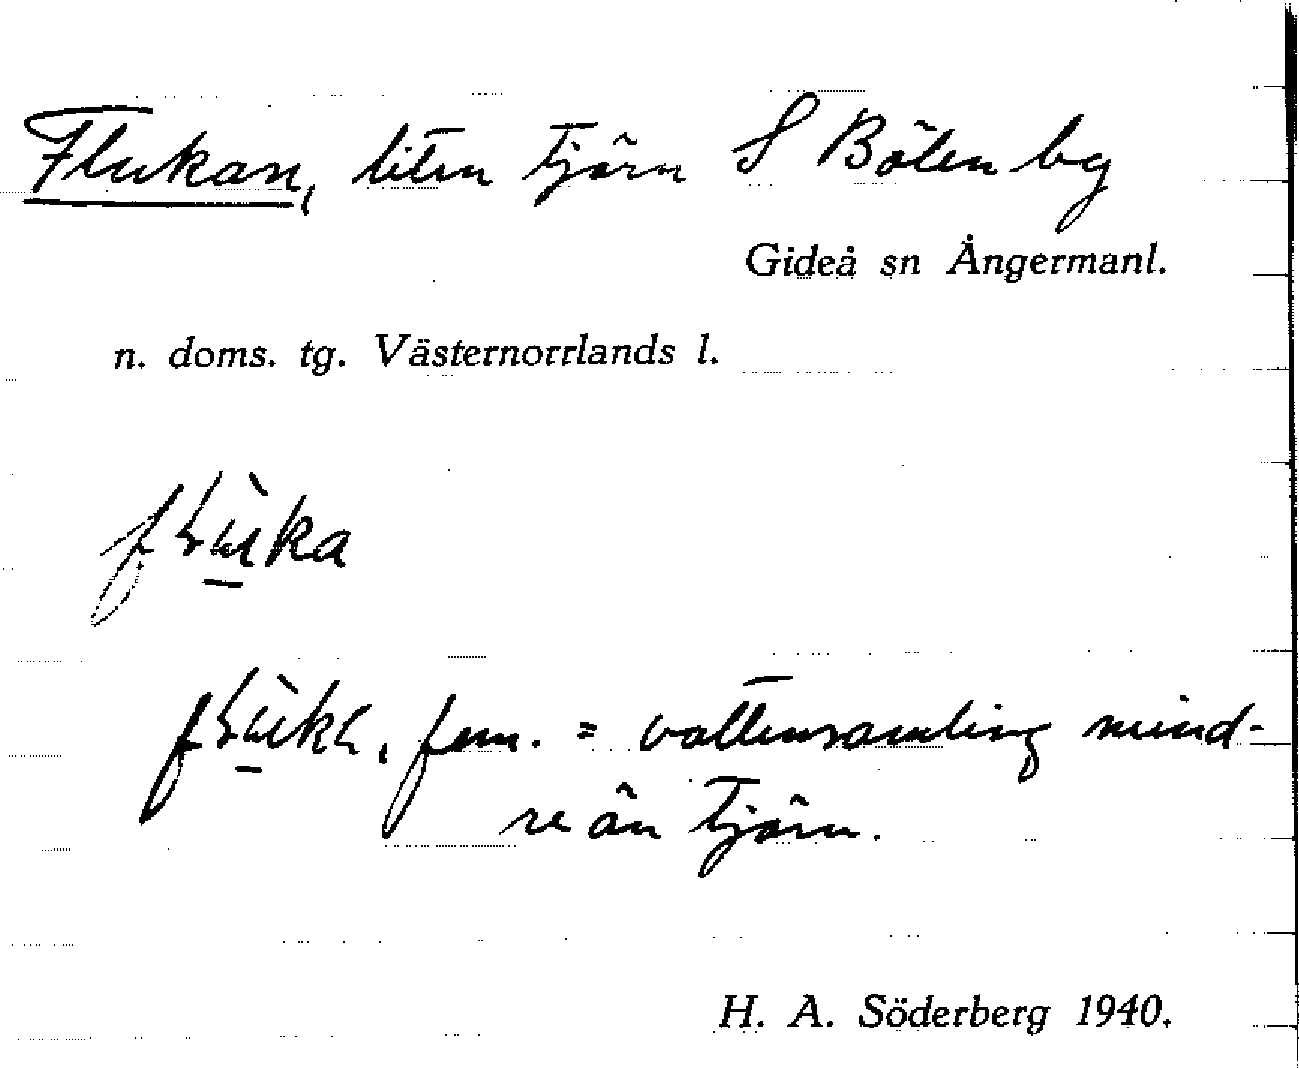 Flukan, liten tjärn S Bölen by
Gideå sn Ångermanl.
n. doms. tg. Västernorrlands l.
fem. = vattensamling mind-
re än tjärn.
H. A. Söderberg 1940.